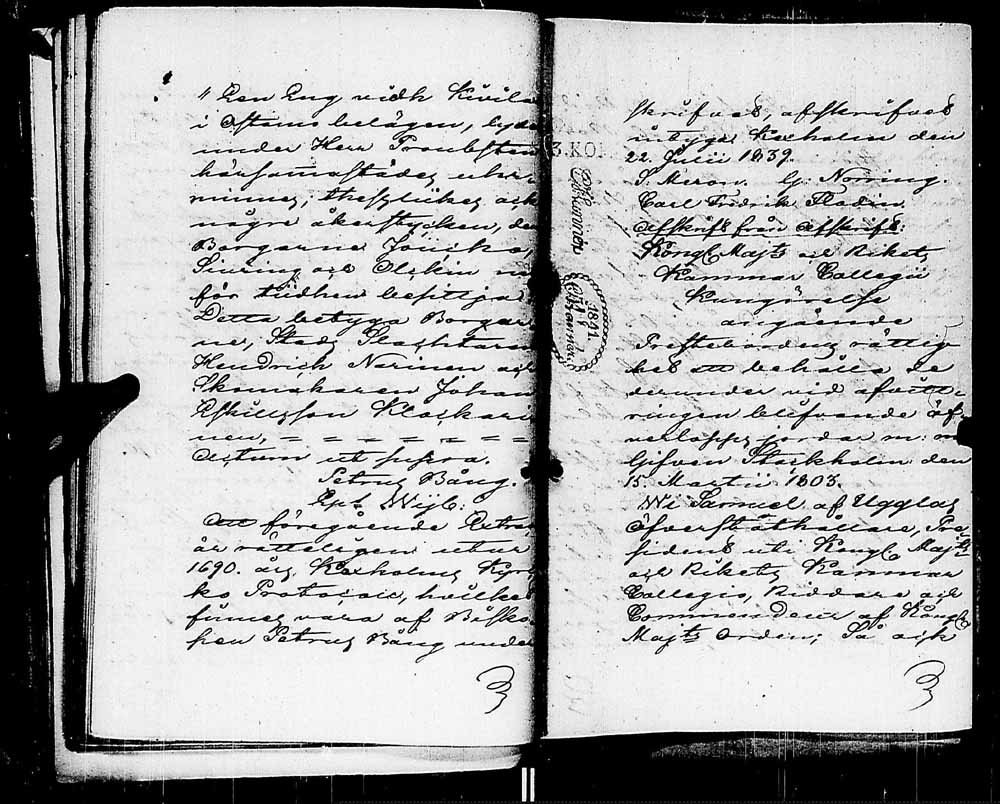 " Een Eng widh Kivila
i Astamo belägen, lyde
under Herr Proubsten
härsammastädes uhr-
minnes, theszlikes och
någre åkerstycken, de
Borgarne Jouiko,
Siuring och Olckin nu
för tiidhen besittja
Detta betyga Borgar
ne, Stads Slachtaren
Hendrich Narinen och
Skomakaren Johan
Eskillsson Klockari
nen, = = = = = =
Actum ut supra.
Petrus Bång.
Epi Wijb:
Att föregående Extract
är rätteligen utur
1690. års Kexholms Kyr
ko Protocoll, hvilket
finnes vara af Bisko
pen Petrus Bång under
skrifvet, afskrifvet
betyga Kexholm den
22. Julii 1839.
S. Meron. G: Norring.
Carl Fridrik Flodin.
Afskrift från Afskrift:
Kongl Majts och Rikets
Kammar Collegii
Kungörelse
angående
Presteboordens rättig
het att behålla de
derunder vid afvitt-
ringen blifvande öf-
verlopps jordar m: m
Gifven Stockholm den
15. Martii 1803.
Wi Samuel af Ugglas
Öfverståthållare, Præ
sident uti Kongl Majts
och Rikets Kammar
Collegio, Riddare och
Commendeur af Kongl
Majts Orden; Så och
3.KO
1841.